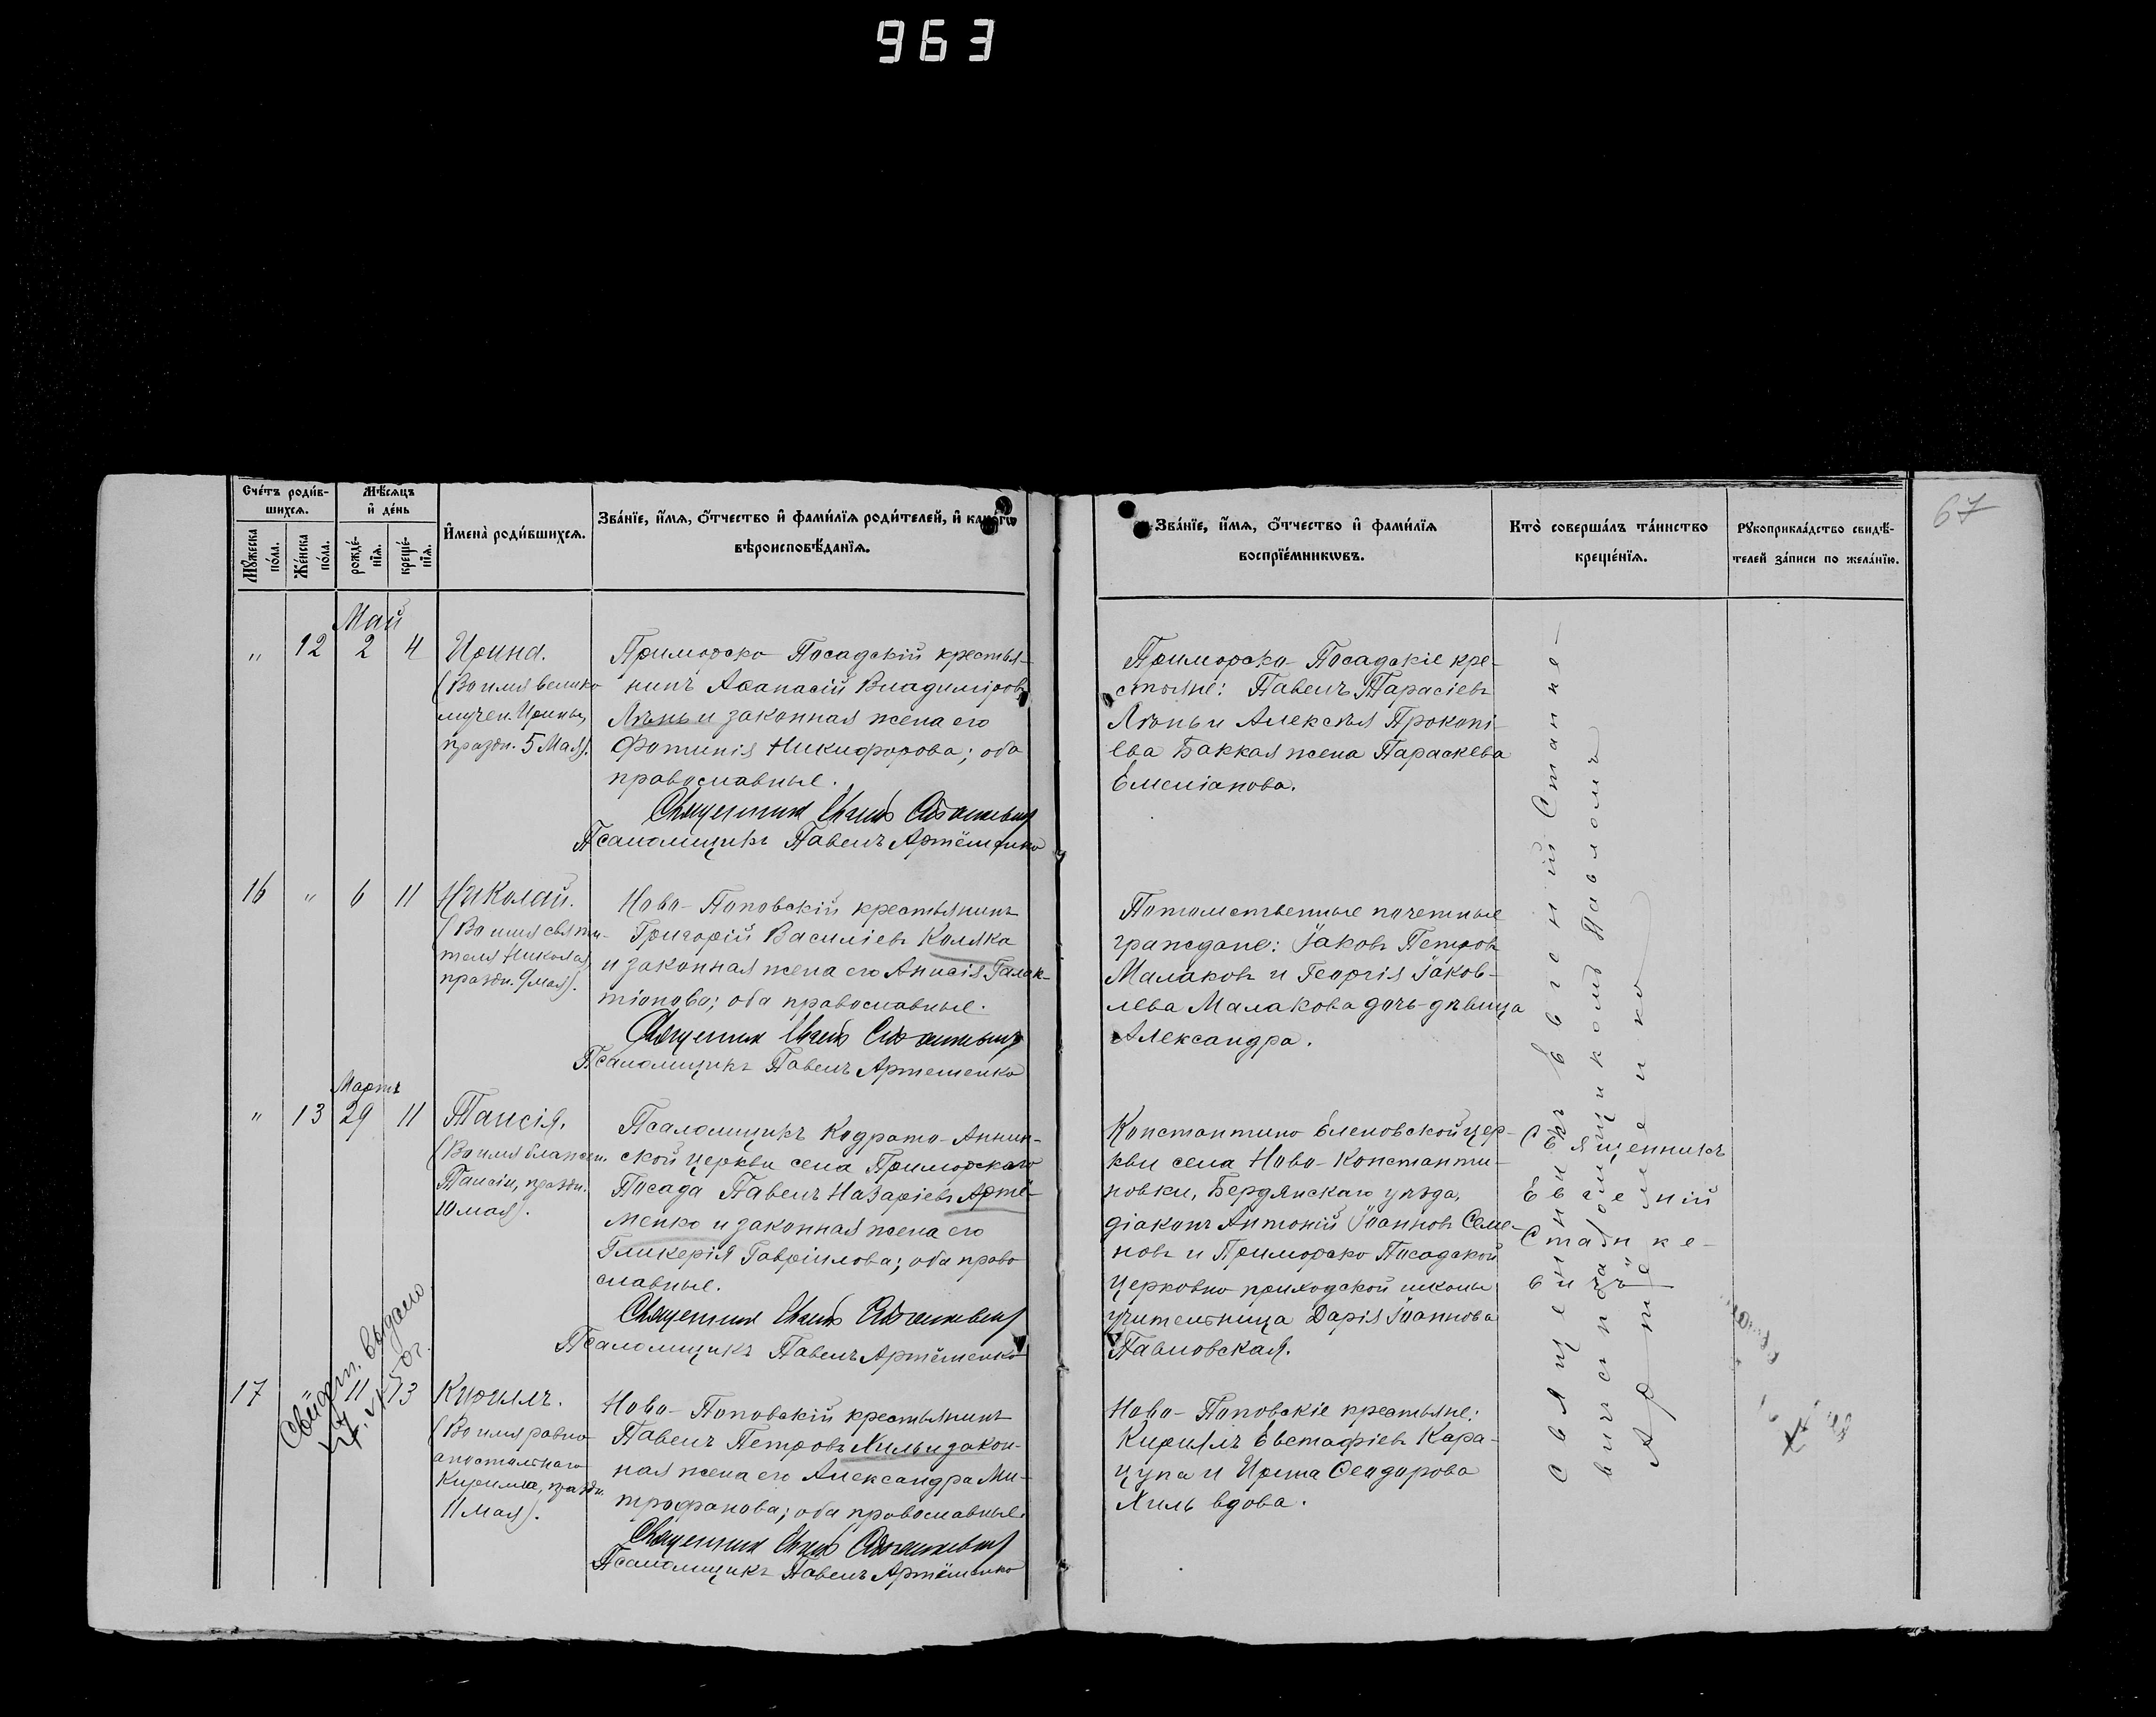 963
67
Счетъ родив-
шихся.
Мужеска
пола.
Женска
пола.
Мѣсяцъ
и день
рожде-
нія.
креще-
нія.
Имена родившихся.
Званіе, имя, отчество и фамилія родителей, и какогѡ
вѣроисповѣданія.
Званіе, имя, отчество и фамилія
воспріемникѡвъ.
Кто совершалъ таинство
крещенія.
Рукоприкладство свидѣ-
телей записи по желанію.
Май
" 12 2 4
Ирина.
(Во имя велико
мучен. Ирины,
праздн. 5 Мая).
Приморско Посадскій крестья-
нинъ Аѳанасій Владиміровъ
Лѣнь и законная жена его
Фотинія Никифорова; оба
православные.
Священникъ
Псаломщикъ Павелъ Артёменко
Приморско-Посадскіе кре-
стьяне: Павелъ Тарасіевъ
Лѣнь и Алексѣя Прокопі-
ева Баккая жена Параскева
Емеліанова.
16 " 6 11
Николай.
(Во имя святи-
теля Николая,
праздн. 9 мая).
Ново-Поповскій крестьянинъ
Григорій Василіевъ Коляка
и законная жена его Анисія Галак-
тіонова; оба православные.
Священникъ
Псаломщикъ Павелъ Артеменко
Потомственные почетные
граждане: Іаковъ Петровъ
Малаковъ и Георгія Іаков-
лева Малакова дочь-дѣвица
Александра.
Мартъ
" 13 29 11
Таисія.
(Во имя блажен.
Таисіи, праздн.
10 мая).
Псаломщикъ Кодрато-Аннин-
ской церкви села Приморскаго
Посада Павелъ Назаріевъ Артё-
менко и законная жена его
Гликерія Гавріилова; оба право
славные.
Священникъ
Псаломщикъ Павелъ Артёменко
Константино Еленовской цер-
кви села Ново-Константи-
новки, Бердянскаго уѣзда,
діаконъ Антоній Іоанновъ Семе-
новъ и Приморско Посадской
Церковно приходской школы
учительница Дарія Іоаннова
Павловская.
Священникъ
Евгеній
Станке-
вичъ
Свидѣт. выдано
17 " 11 13
Кириллъ.
(Во имя равно-
апостольнаго
Кирилла, праздн.
11 Мая).
Ново-Поповскій крестьянинъ
Павелъ Петровъ Хиль и закон-
ная жена его Александра Ми-
трофанова; оба православные.
Священникъ
Псаломщикъ Павелъ Артёменко
Ново-Поповскіе крестьяне:
Кириллъ Евстафіевъ Кара-
цупа и Ирина Ѳеодорова
Хиль вдова.
Священникъ Евгеній Станке-
вичъ и псаломщикомъ Павломъ
Артёменко